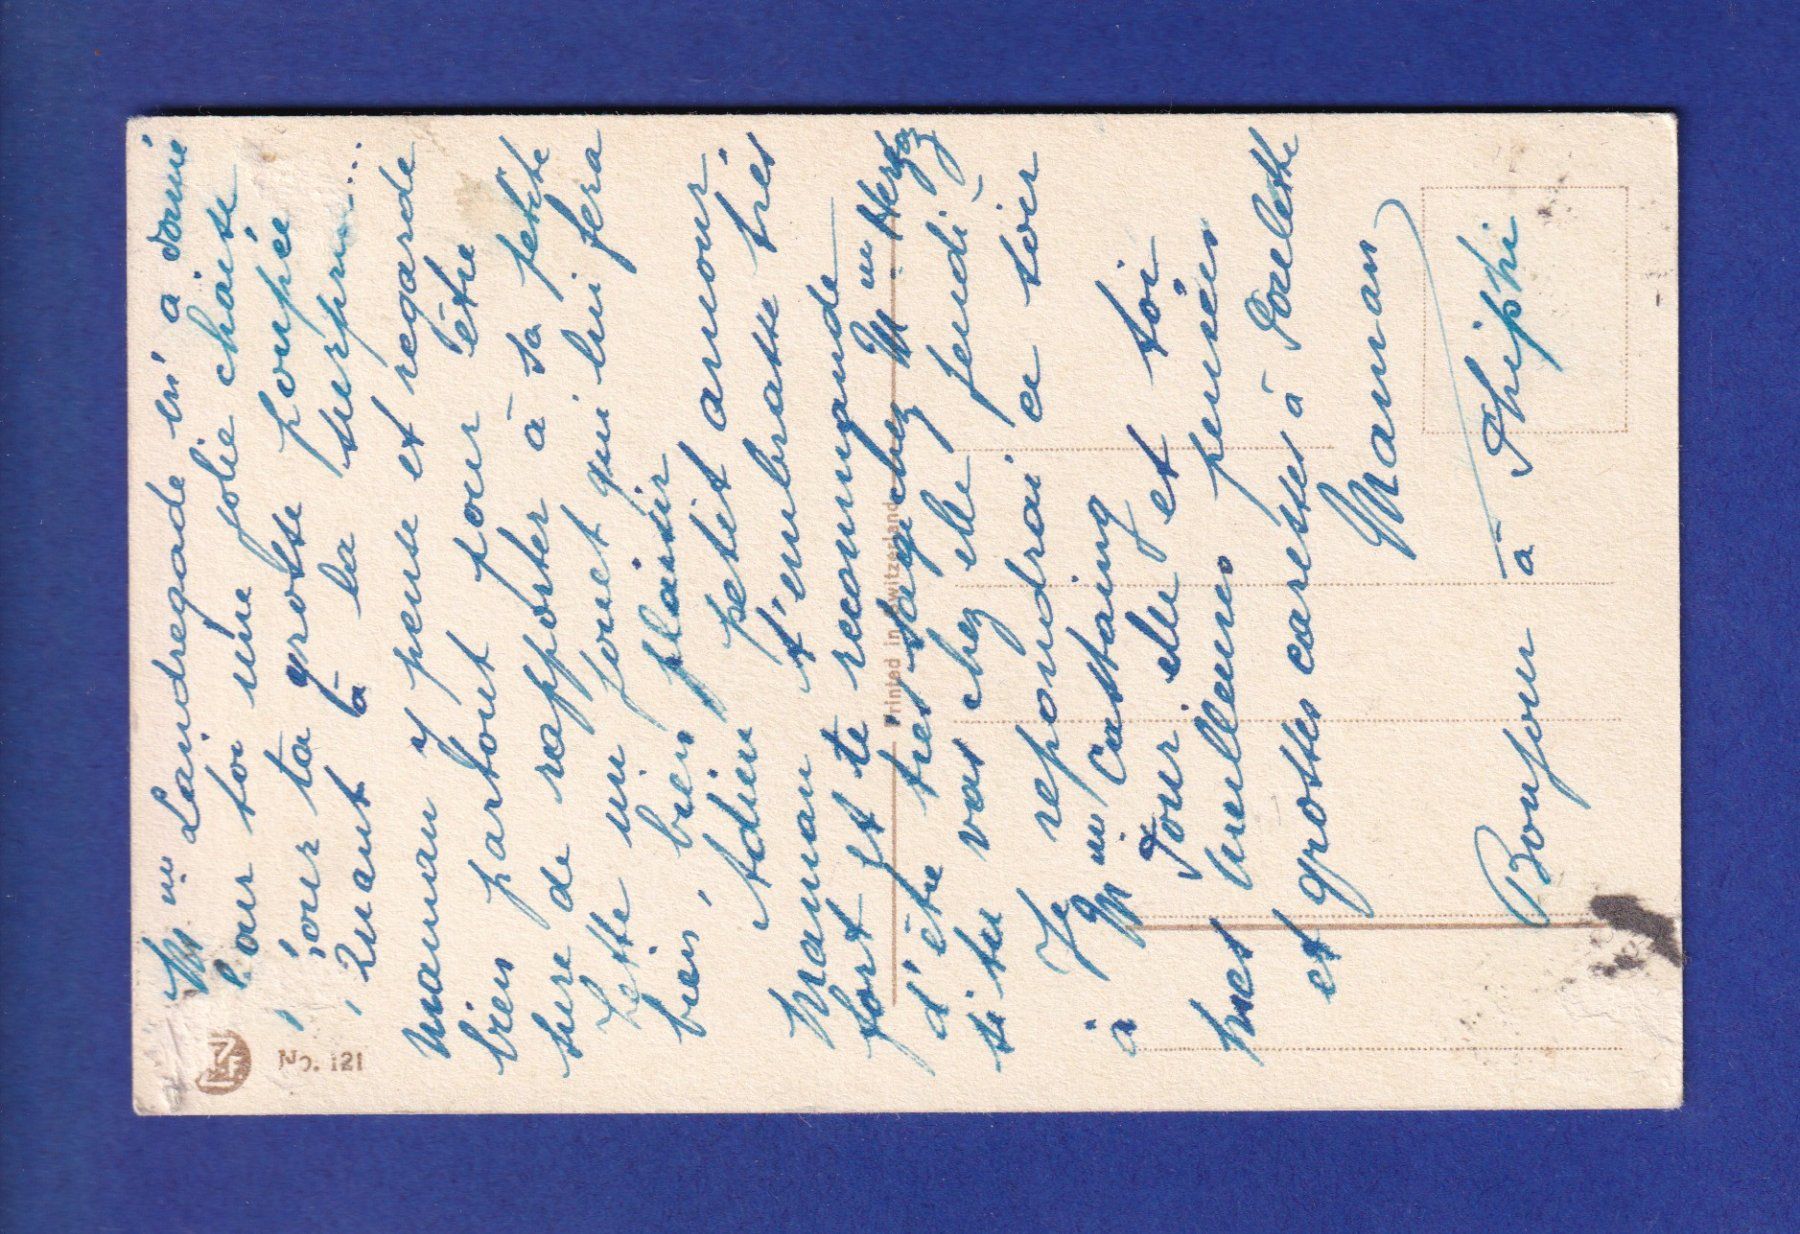 Mme Landregade m'a donné
pour toi une jolie chaise
pour ta grosse poupée
Quant à la surprise...
maman y pense et regarde
bien partout pour être
sure de rapporter à sa petite
Zette un jouet qui lui fera
bien, bien plaisir
Adieu petit amour
Maman t'embrasse très
fort et te recommande
d'être très sage chez Mme Herzog
si tu vas chez elle jeudi
Je repondrai ce soir
à Mme Castaing
Pour elle et toi
mes meilleures pensées
et grosses caresses à Poulette
Maman
Bonjour à Phiphi
Printed in Switzerland
No. 121